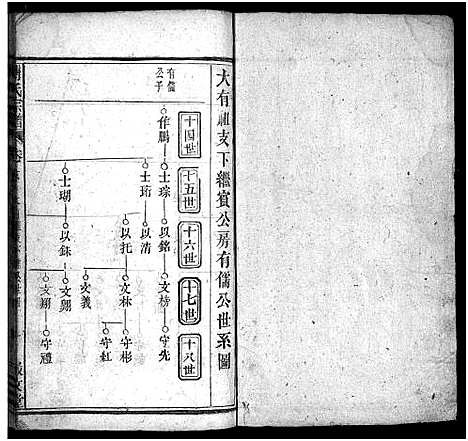 大有祖支下繼賓公房有儒公世系圖
十四世
十五世
十六世
十七世
十八世
有儒公子
作鵬
士琮
以銘
文榜
守先
士珩
以清
以托
文林
守彬
守紅
士瑚
以銖
文義
文翔
守禮